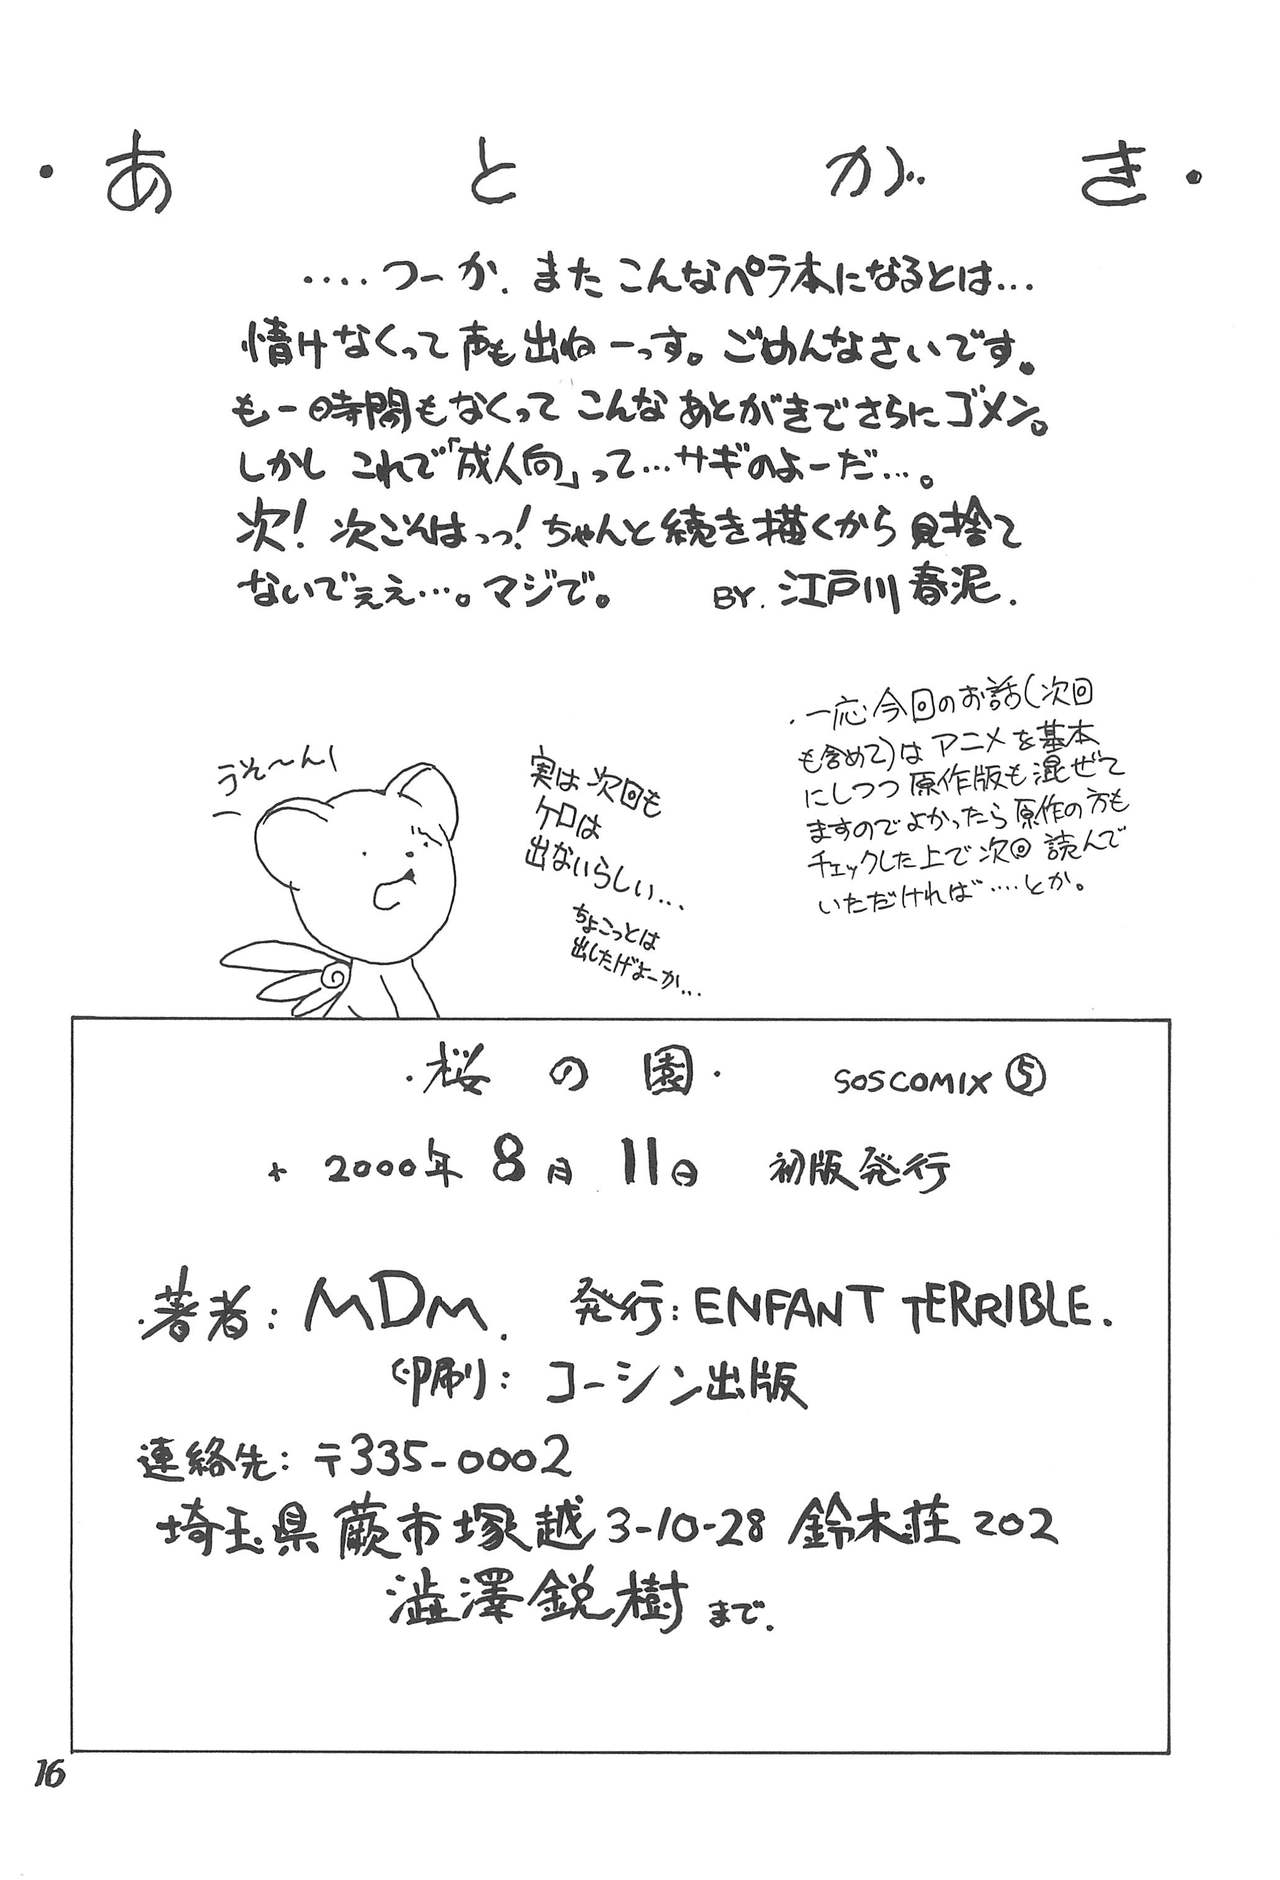 ・あとがき・
‥‥つーか、またこんなペラ本になるとは…
情けなくって声も出ねーっす。ごめんなさいです。
も一時間もなくってこんなあとがきでさらにゴメン。
しかしこれで「成人向」って…サギのよーだ…。
次！次こそはっっ！ちゃんと続き描くから見捨て
ないでぇぇ…。マジで。 BY. 江戸川春泥.
・一応今回のお話(次回
も含めて)はアニメを基本
にしつつ原作版も混ぜて
ますのでよかったら原作の方も
チェックした上で次回読んで
いただければ‥‥とか。
うそ〜ん
実は次回も
ケロは
出ないらしい…
ちょこっとは
出したげよーか…
・桜の園・ SOSCOMIX ⑤
+ 2000年 8月 11日 初版発行
・著者: MDM. 発行: ENFANT TERRIBLE.
印刷: コーシン出版
連絡先: 〒335-0002
埼玉県蕨市塚越3-10-28 鈴木荘202
澁澤鋭樹まで.
16